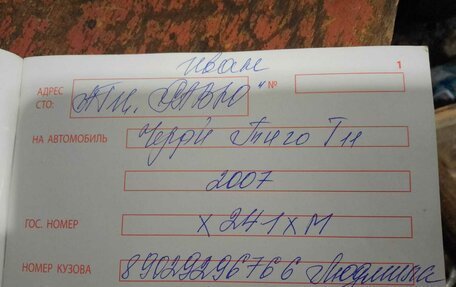 Иван
1
АДРЕС СТО: №
НА АВТОМОБИЛЬ Черри Тиго Т11
2007
ГОС. НОМЕР Х241ХМ
НОМЕР КУЗОВА 89029296766 Людмила